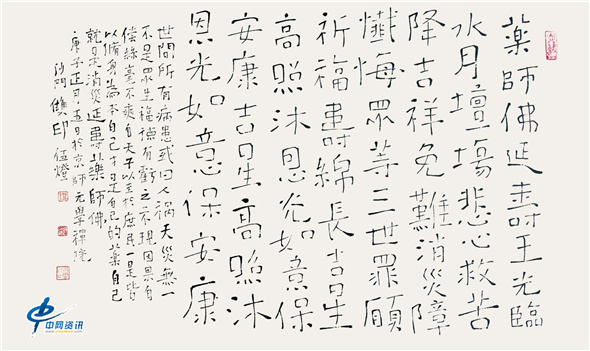 藥師佛延壽王光臨
水月壇場悲心救苦
降吉祥免難消災障
懺悔眾等三世罪願
祈福壽綿長吉星
高照沐恩光如意保
安康吉星高照沐
恩光如意保安康
世間所有病患或曰人禍天災無一
不是眾生福德有虧之不現因果自
償絲毫不爽自天子以至於庶民一是皆
以脩身為本自己才是自己的藥自己
就是消災延壽藥師佛
庚子正月五日於京師元學禪院
沙門雙印
中网资讯